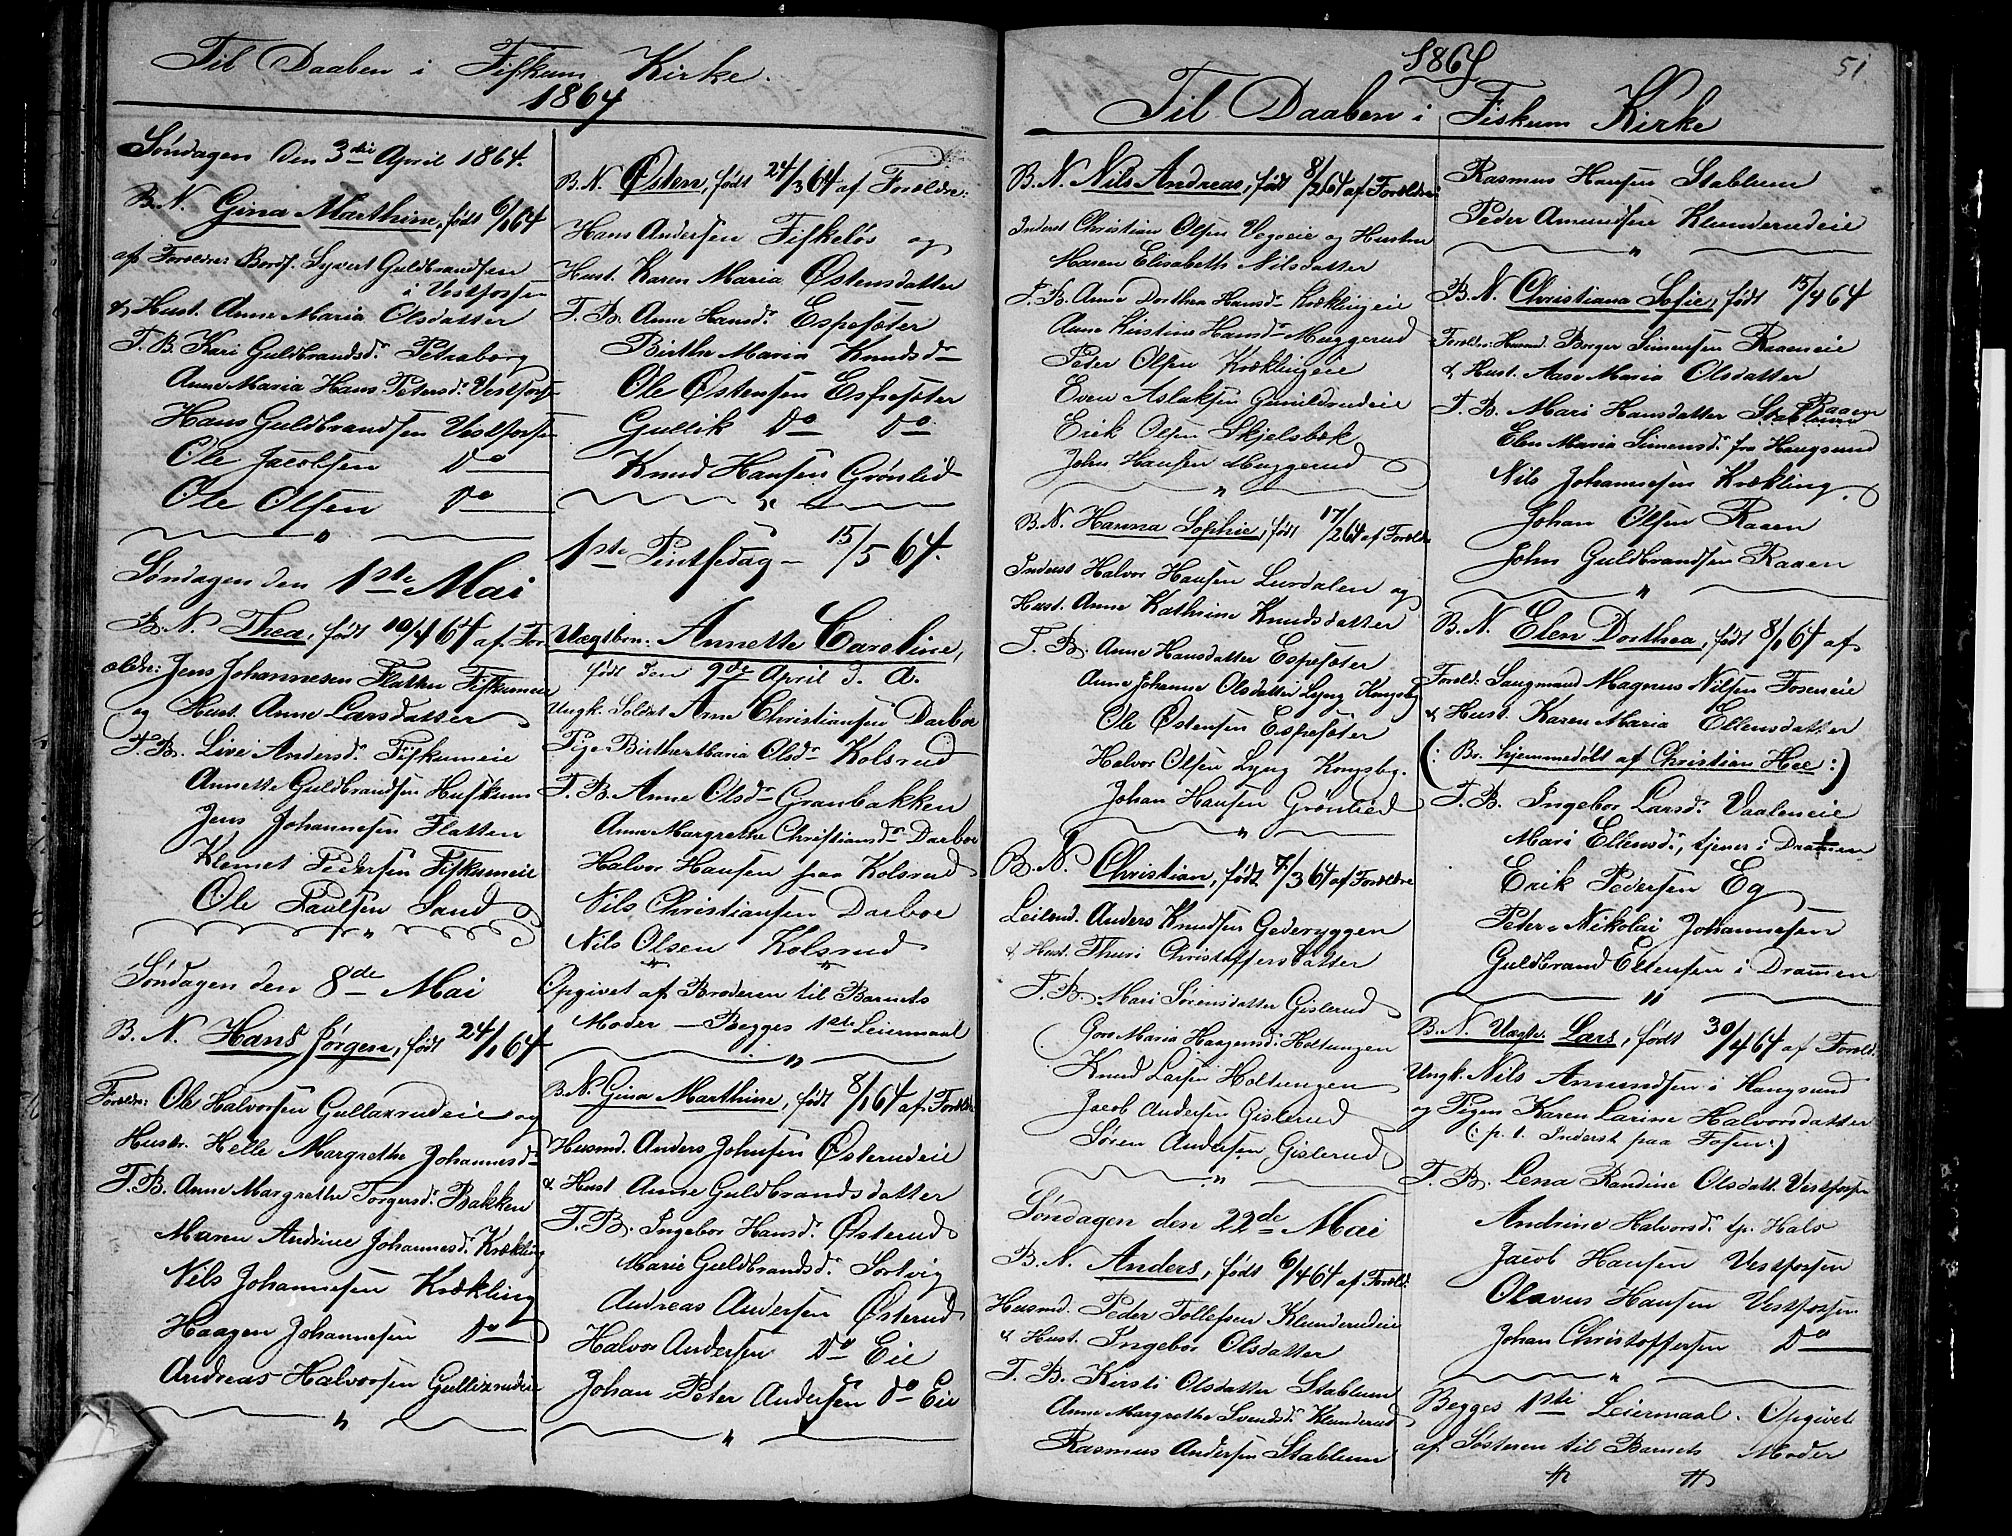 Til Daaben i Fiskum Kirke.
1864
Søndagen den 3die April 1864.
B. N. Gina Marthine, født 6/1 64
af Foreldre: Bordf. Syvert Guldbrandsen
i Vestfossen
& Hust. Anne Maria Olsdatter
F. B. Kari Guldbrandsd. Petraborg
Anne Maria Hans Petersd. Vestfoss
Hans Guldbrandsen Vestfossen
Ole Jacobsen Do
Ole Olsen Do
Søndagen den 1ste Mai
B. N. Thea, født 10/4 64 af For
ældre: Jens Johannesen Flatten Fiskumeie
og Hust. Anne Larsdatter
F. B. Live Andersd. Fiskumeie
Annette Guldbrandsen Huskum
Jens Johannesen Flatten
Klemet Pedersen Fiskumeie
Ole Paulsen Sand
Søndagen den 8de Mai
B. N. Hans Jørgen, født 24/1 64
Foreldre: Ole Halvorsen Gullaxrudeie og
Hustr. Helle Margrethe Johannesd.
F. B. Anne Margrethe Torgersd. Bakken
Maren Andrine Johannesd. Krækling
Nils Johannesen Krækling
Haagen Johannesen Do
Andreas Halvorsen Gullixrudeie
B. N. Østen, født 24/3 64 af Foreldre:
Hans Andersen Fiskeløs og
Hust. Karen Maria Østensdatter
F. B. Anne Hansd. Espesæter
Birthe Maria Knudsd.
Ole Østensen Espesæter
Gullik Do Do
Knud Hansen Grønlid
1ste Pintsedag - 15/5 64.
Uægtbn. Annette Caroline,
født den 9de April d. A.
Ungk. Soldat Arne Christiansen Darboe
Pige Birthe Maria Olsd. Kolsrud
F. B. Anne Olsd. Granbakken
Anne Margrethe Christiansd. Darboe
Halvor Hansen paa Kolsrud
Nils Christiansen Darboe
Nils Olsen Kolsrud
Opgivet af Broderen til Barnets
Moder - Begges 1ste Leiermaal
B. N. Gina Marthine, født 8/1 64 af Foreldre
Husmd. Anders Johnsen Østerudeie
& Hust. Anne Guldbrandsdatter
F. B. Ingebor Hansd. Østerud
Marie Guldbrandsd. Sortvig
Andreas Andersen Østerud
Halvor Andersen Do Eie
Johan Peter Andersen Do Eie
1864
51
Til Daaben i Fiskum Kirke
B. N. Nils Andreas, født 8/2 64 af Foreldre
Inderst Christian Olsen Vegoeie og Hustru
Maren Elisabeth Nilsdatter
F. B. Anne Dorthea Hansd. Kræklingeie
Anne Kirstine Hansd. Muggerud
Peder Olsen Kræklingeie
Even Aslaksen Gunildrudeie
Erik Olsen Skjelsbæk
John Hansen Muggerud
B. N. Hanna Sophie, født 17/2 64 af Foreldre
Inderst Halvor Hansen Lurdalen og
Hust. Anne Kathrine Knudsdatter
F. B. Anne Hansdatter Espesæter
Anne Johanne Olsdatter Lyng Kongsbg
Ole Østensen Espesæter
Halvor Olsen Lyng Kongsbg.
Johan Hansen Grønlied
B. N. Christian, født 7/3 64 af Foreldre
Leilend. Anders Knudsen Gederyggen
& Hust. Thuri Christoffersdatter
F. B. Mari Sørensdatter Gislerud
Gore Maria Haagensd. Holtungen
Knud Larsen Holtungen
Jacob Andersen Gislerud
Søren Andersen Gislerud
Søndagen den 22de Mai
B. N. Anders, født 6/4 64 af Foreld:
Husmd. Peder Tollefsen Klunderudeie
& Hust. Ingebor Olsdatter
F. B. Kirsti Olsdatter Stablum
Anne Margrethe Svendsd. Klunderud
Rasmus Andersen Stablum
Rasmus Hansen Stablum
Peder Amundsen Klunderudeie
B. N. Christiana Sofie, født 15/4 64
Foreldre: Husmd. Borger Simensen Raaeneie
& Hust. Aase Maria Olsdatter
F. B. Mari Hansdatter Stablum Raaen
Elen Maria Simensd. fra Haugsund
Nils Johannesen Krækling
Johan Olsen Raaen
John Guldbrandsen Raaen
B. N. Elen Dorthea, født 8/1 64 af
Foreld: Saugmand Magnus Nilsen Foseneie
& Hust. Karen Maria Ellensdatter
(: Br. hjemmedøbt af Christian Hoe :)
F. B. Ingebor Larsd. Vaaleneie
Mari Ellensd., tjener i Drammen
Erik Pedersen Eg
Peter Nikolai Johannesen
Guldbrand Ellensen i Drammen
B. N. Uægte Lars, født 30/4 64 af Foreld:
Ungk. Nils Amundsen i Haugsund
og Pigen Karen Larine Halvorsdatter
(: p. t. Inderst paa Fosen :)
F. B. Lena Randine Olsdatt. Vestfossen
Andrine Halvorsd. tp. Hals
Jacob Hansen Vestfossen
Olavus Hansen Vestfossen
Johan Christoffersen Do
Begges 1ste Leiermaal. Opgivet
af Søsteren til Barnets Moder